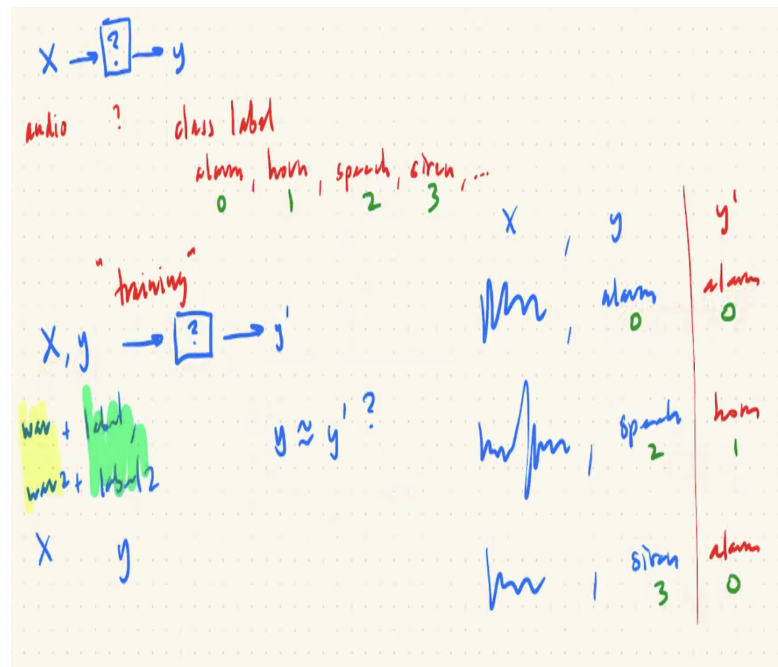 X → ? → y
audio ? class label
alarm, horn, speech, siren, ...
0 1 2 3
"training"
X, y → ? → y'
wav + label,
wav2 + label2
X y
y ≈ y' ?
X , y y'
, alarm alarm
0 0
, speech horn
2 1
, siren alarm
3 0